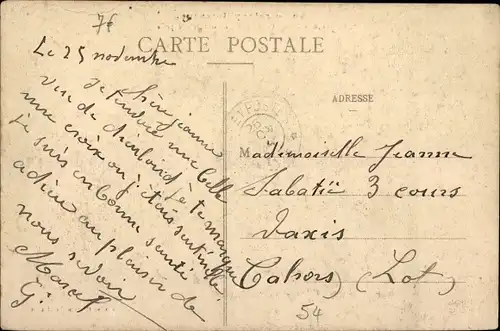 76
CARTE POSTALE
Le 25 novembre
chère Jeanne
je t'envoie une belle
vue de Dieulouard je te marque
une croix où j'étais sentinelle
je suis en bonne santé
adieu au plaisir de
nous revoir
Marcel
G
ADRESSE
Mademoiselle Jeanne
Sabatié 3 cours
Vaxis
Cahors (Lot)
54